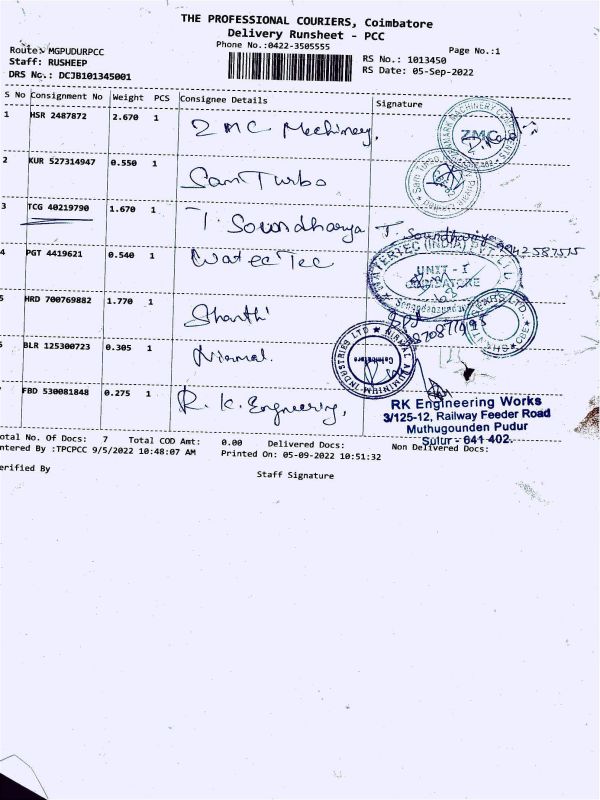 THE PROFESSIONAL COURIERS, Coimbatore
Delivery Runsheet - PCC
Phone No.:0422-3505555
Page No.:1
Route: MGPUDURPCC
Staff: RUSHEEP
DRS No.: DCJB101345001
RS No.: 1013450
RS Date: 05-Sep-2022
S No Consignment No Weight PCS Consignee Details Signature
1 HSR 2487872 2.670 1 ZMC Mechinery.
ZMC
2 KUR 527314947 0.550 1 Sam Turbo
3 TCG 40219790 1.670 1 T. Soundharya T. Soundhariya
4 PGT 4419621 0.540 1 WaterTec
WATERTEC (INDIA) PVT. L
UNIT - I
COIMBATORE
5 HRD 700769882 1.770 1 Shanthi
BLR 125300723 0.305 1 Nirmal.
NIRMAL ALUMINIUM INDUSTRIES LTD
Coimbatore
FBD 530081848 0.275 1 R. K. Engineering,
RK Engineering Works
3/125-12, Railway Feeder Road
Muthugounden Pudur
Sulur - 641 402.
otal No. Of Docs: 7 Total COD Amt: 0.00 Delivered Docs: Non Delivered Docs:
ntered By :TPCPCC 9/5/2022 10:48:07 AM Printed On: 05-09-2022 10:51:32
erified By
Staff Signature